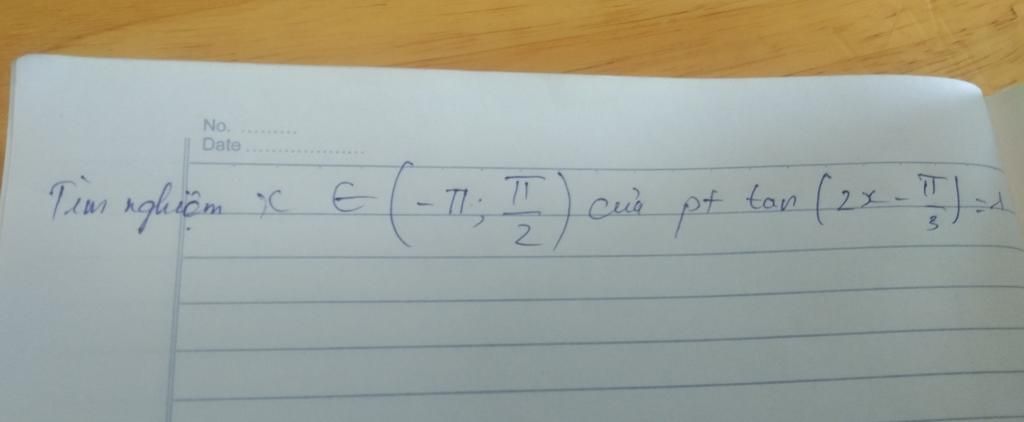 No. .........
Date ....................
Tìm nghiệm x ∈ (-π; π/2) của pt tan (2x - π/3) = 1